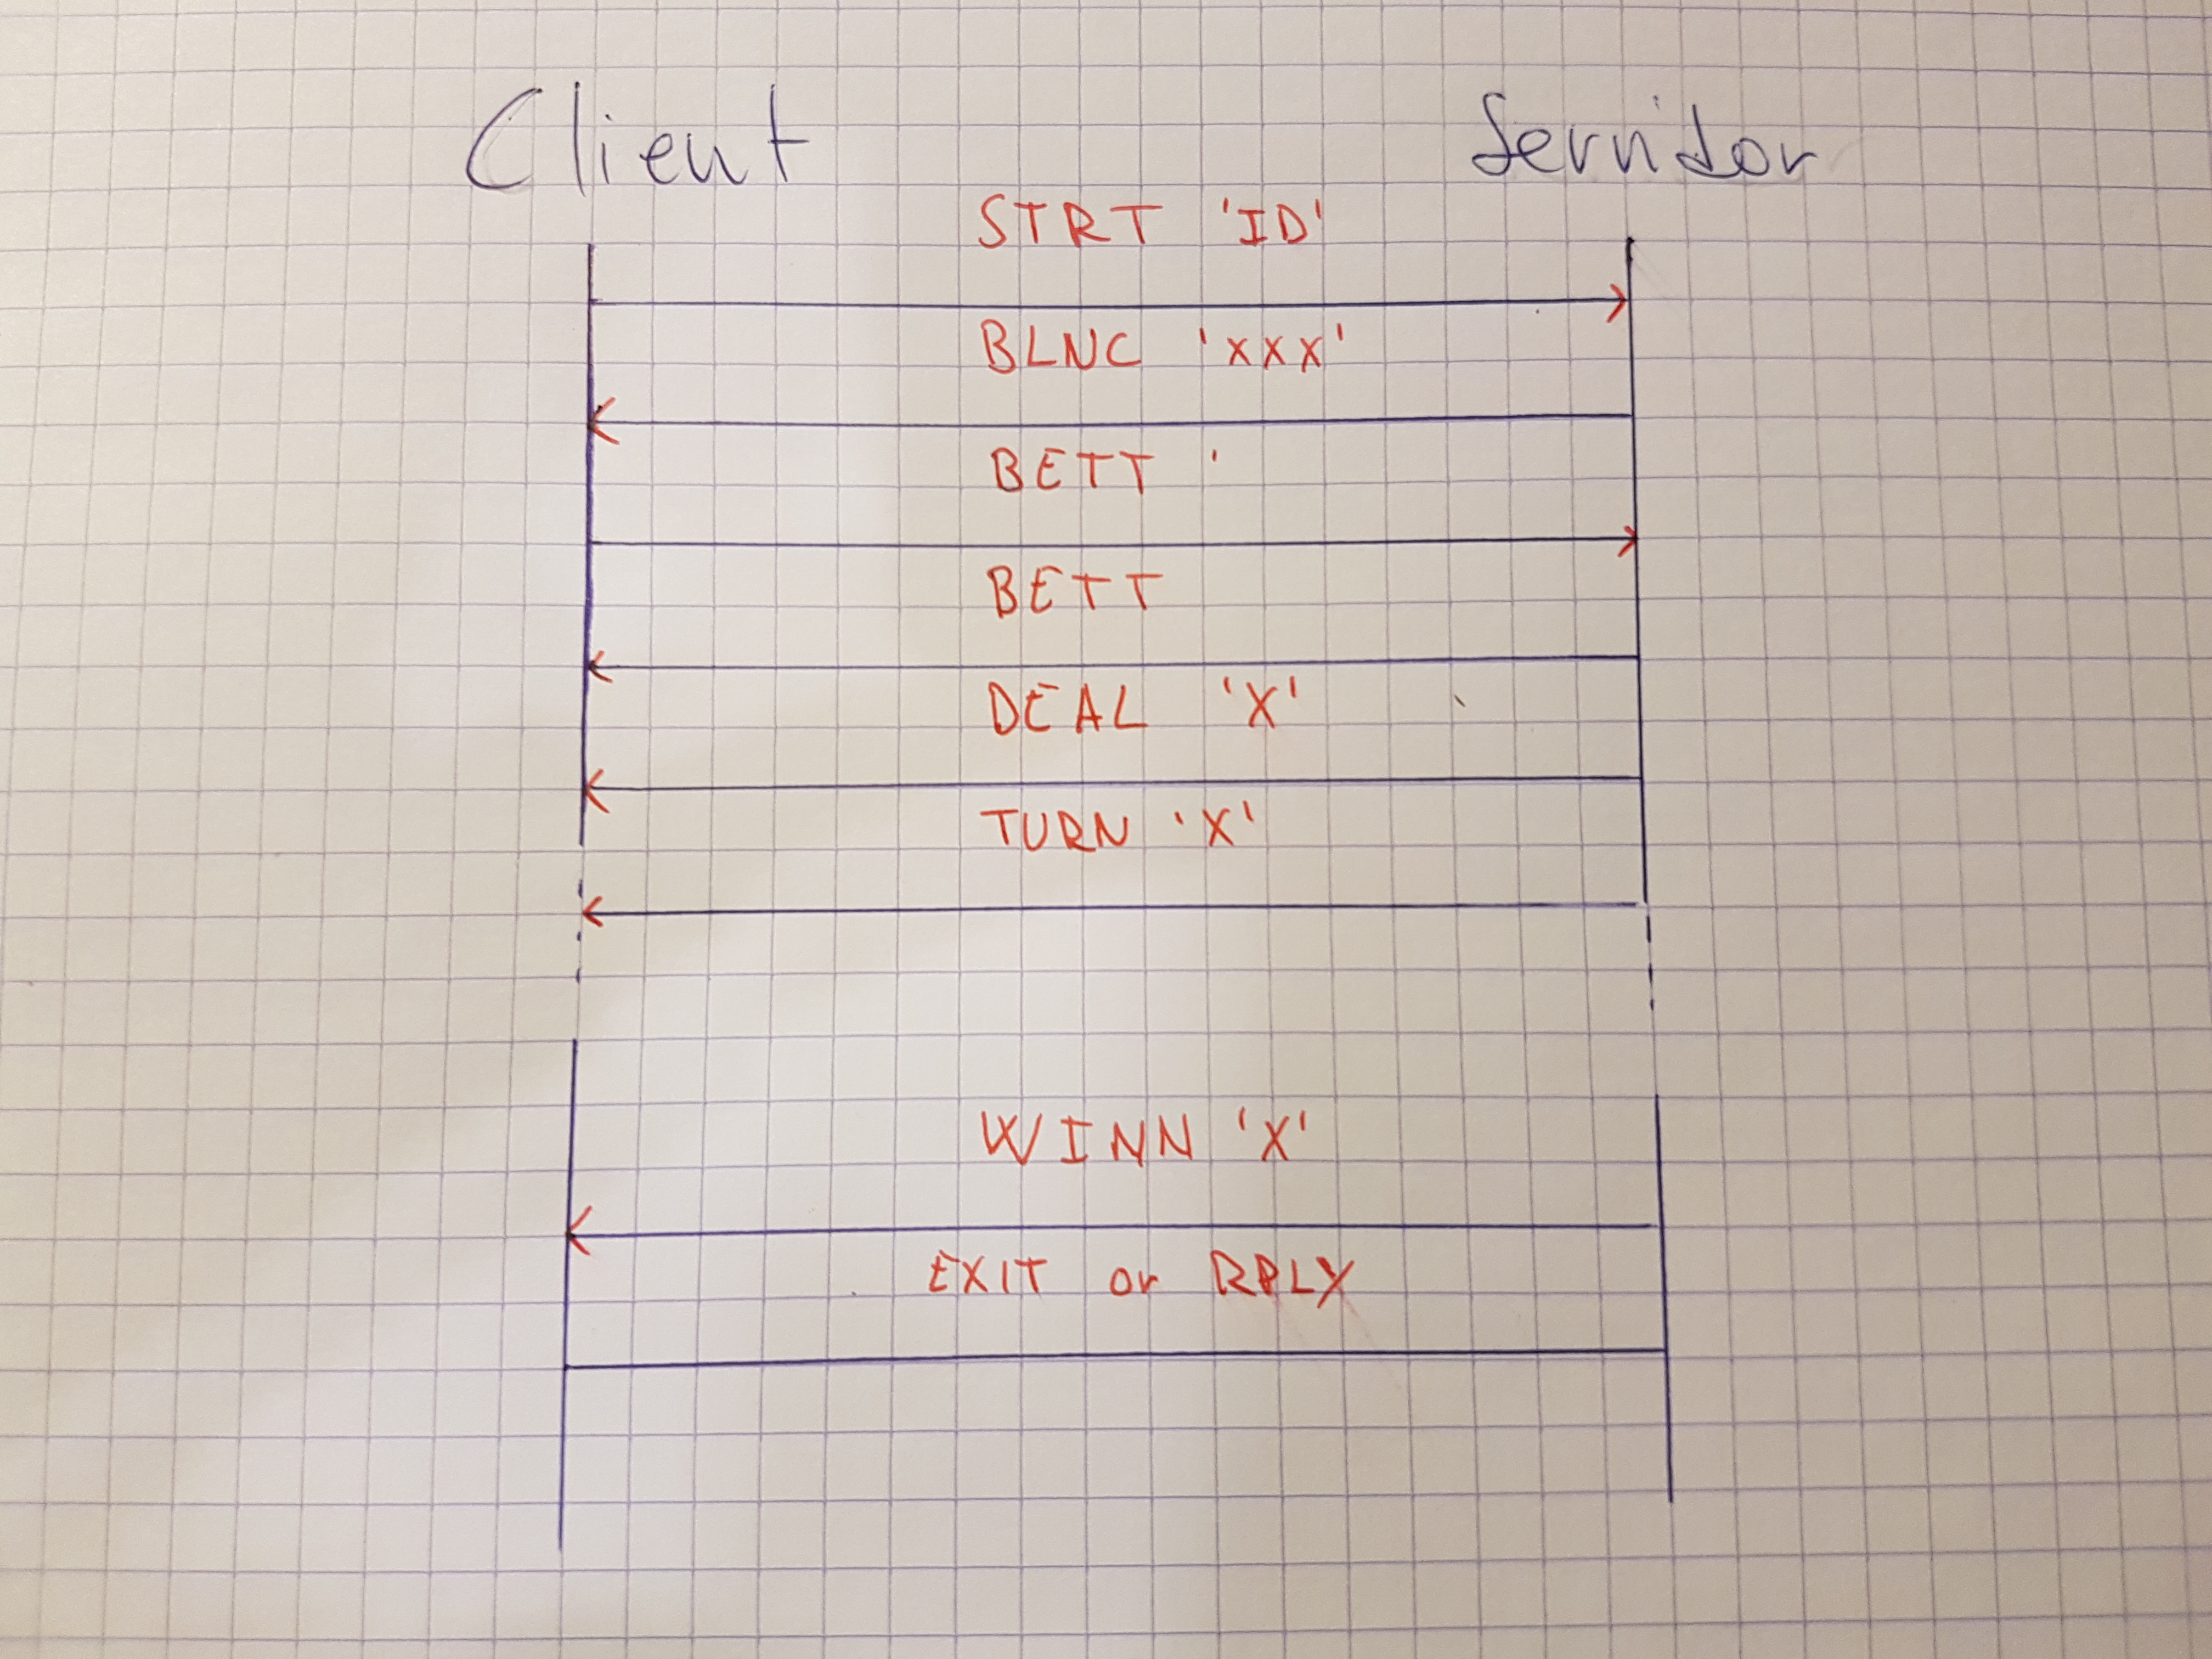 Client Servidor
STRT 'ID'
BLNC 'XXX'
BETT '
BETT
DEAL 'X'
TURN 'X'
WINN 'X'
EXIT or RPLY